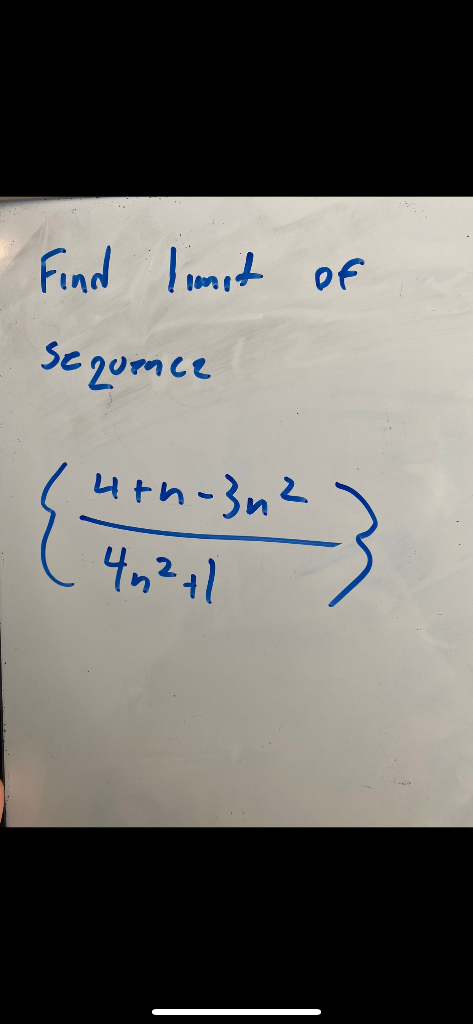 Find limit of
sequence
{ 4+n-3n²
4n²+1 }